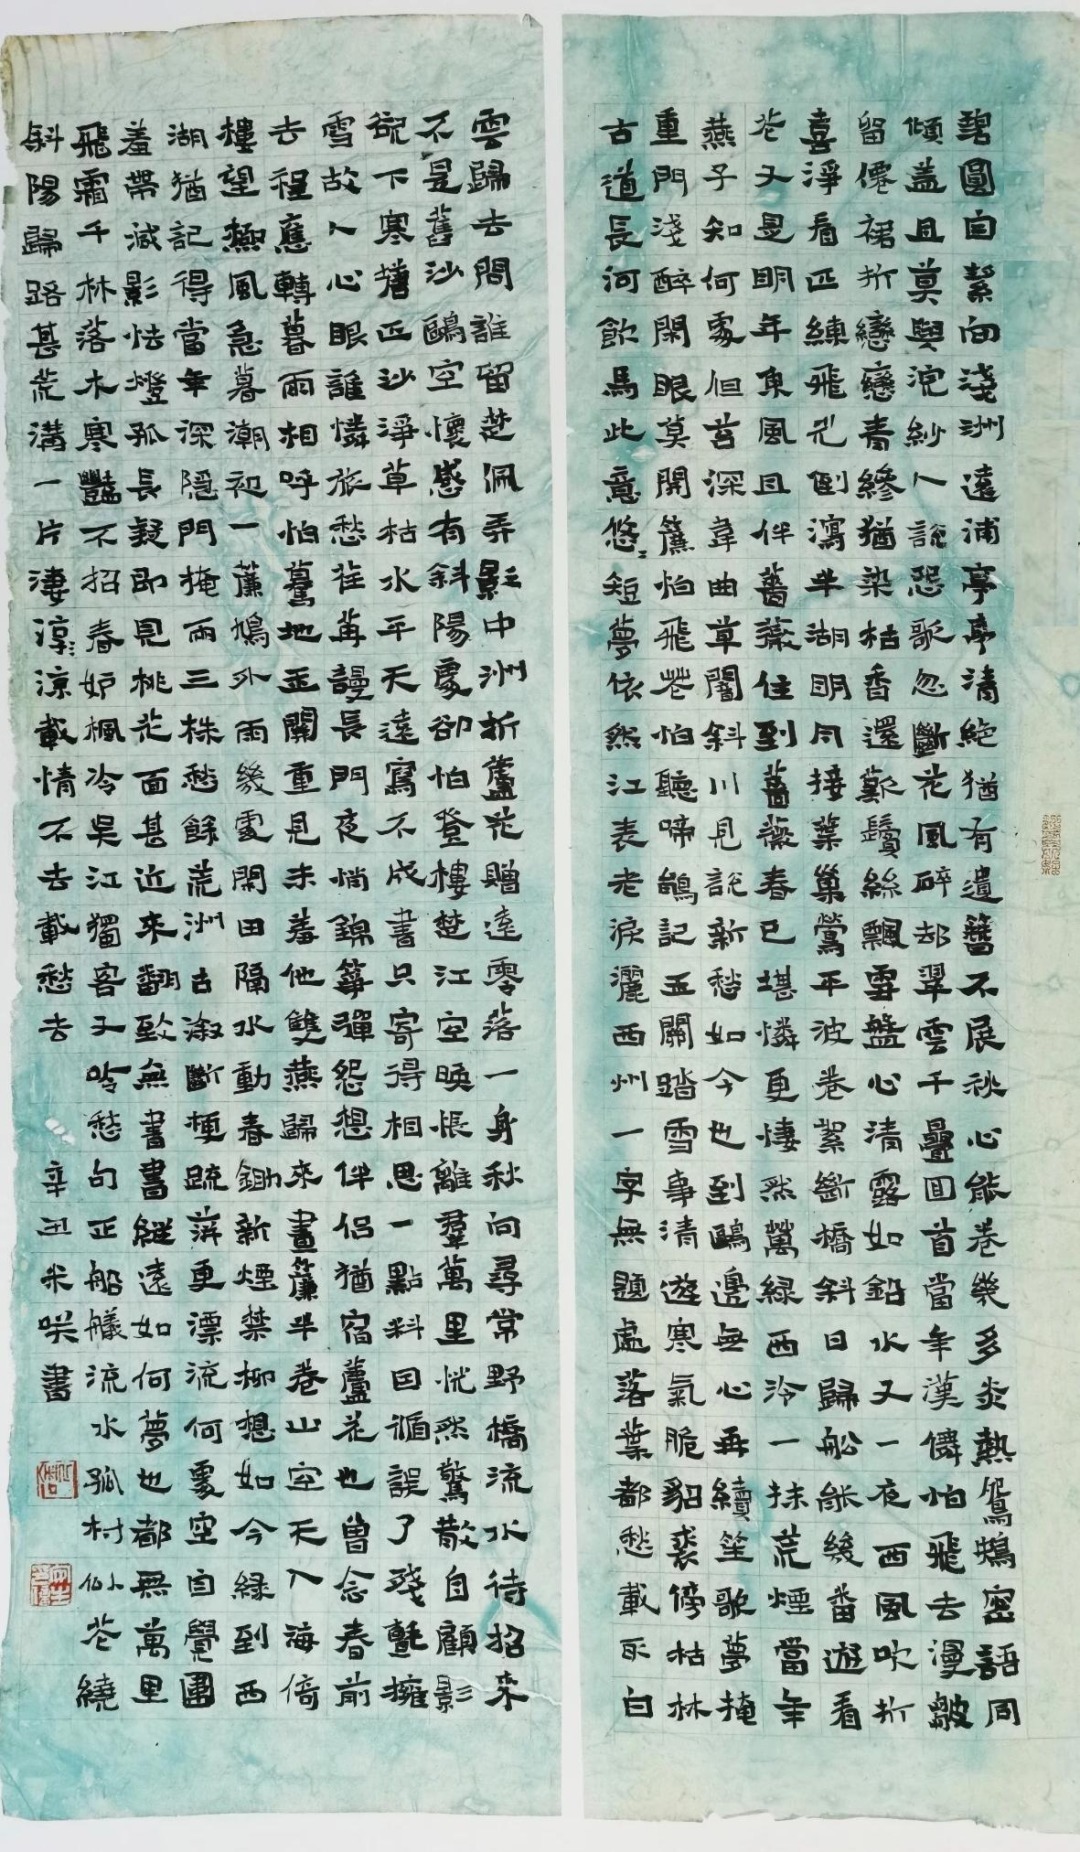 碧圓自絜向淺洲遠浦亭亭清絕猶有遺簪不展秋心能卷幾多炎熱鴛鴦密語同
傾盖且莫與浣紗人說恐歌忽斷花風碎却翠雲千疊回首當年漢儛怕飛去漫皺
留僊裙折戀戀青縿猶染枯香還歎鬢絲飄雪盤心清露如鉛水又一夜西風吹折
喜淨看匹練飛光倒瀉半湖明月接葉巢鶯平波卷絮斷橋斜日歸船能幾番遊看
花又是明年東風且伴薔薇住到薔薇春已堪憐更悽然萬綠西泠一抹荒煙當年
燕子知何處但苔深韋曲草闇斜川見說新愁如今也到鷗邊無心再續笙歌夢掩
重門淺醉閑眠莫開簾怕飛花怕聽啼鵑記玉關踏雪事清遊寒氣脆貂裘傍枯林
古道長河飲馬此意悠悠短夢依然江表老淚灑西州一字無題處落葉都愁載取白
雲歸去問誰留楚佩弄影中洲折蘆花贈遠零落一身秋向尋常野橋流水待招來
不是舊沙鷗空懷感有斜陽處卻怕登樓楚江空晚悵離羣萬里恍然驚散自顧影
欲下寒塘正沙淨草枯水平天遠寫不成書只寄得相思一點料因循誤了殘氈擁
雪故人心眼誰憐旅愁荏苒謾長門夜悄錦箏彈怨想伴侶猶宿蘆花也曾念春前
去程應轉暮雨相呼怕驀地玉關重見未羞他雙燕歸來畫簾半卷山空天入海倚
樓望極風急暮潮初一簾鳩外雨幾處閑田隔水動春鋤新煙禁柳想如今綠到西
湖猶記得當年深隱門掩兩三株愁餘荒洲古溆斷梗疏萍更漂流何處空自覺圍
羞帶減影怯燈孤長疑即見桃花面甚近來翻致無書書縱遠如何夢也都無萬里
飛霜千林落木寒豔不招春妒楓冷吳江獨客又吟愁句正船艤流水孤村似花繞
斜陽歸路甚荒溝一片淒涼載情不去載愁去 辛丑米咲書